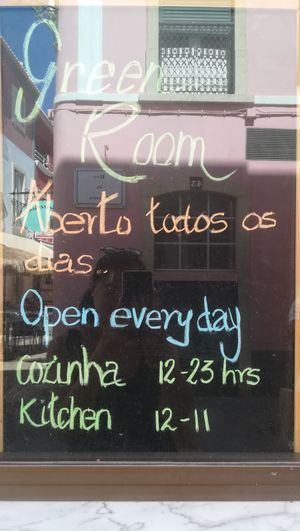 Green
Room
Aberto todos os
dias..
Open everyday
Cozinha 12-23 hrs
Kitchen 12-11